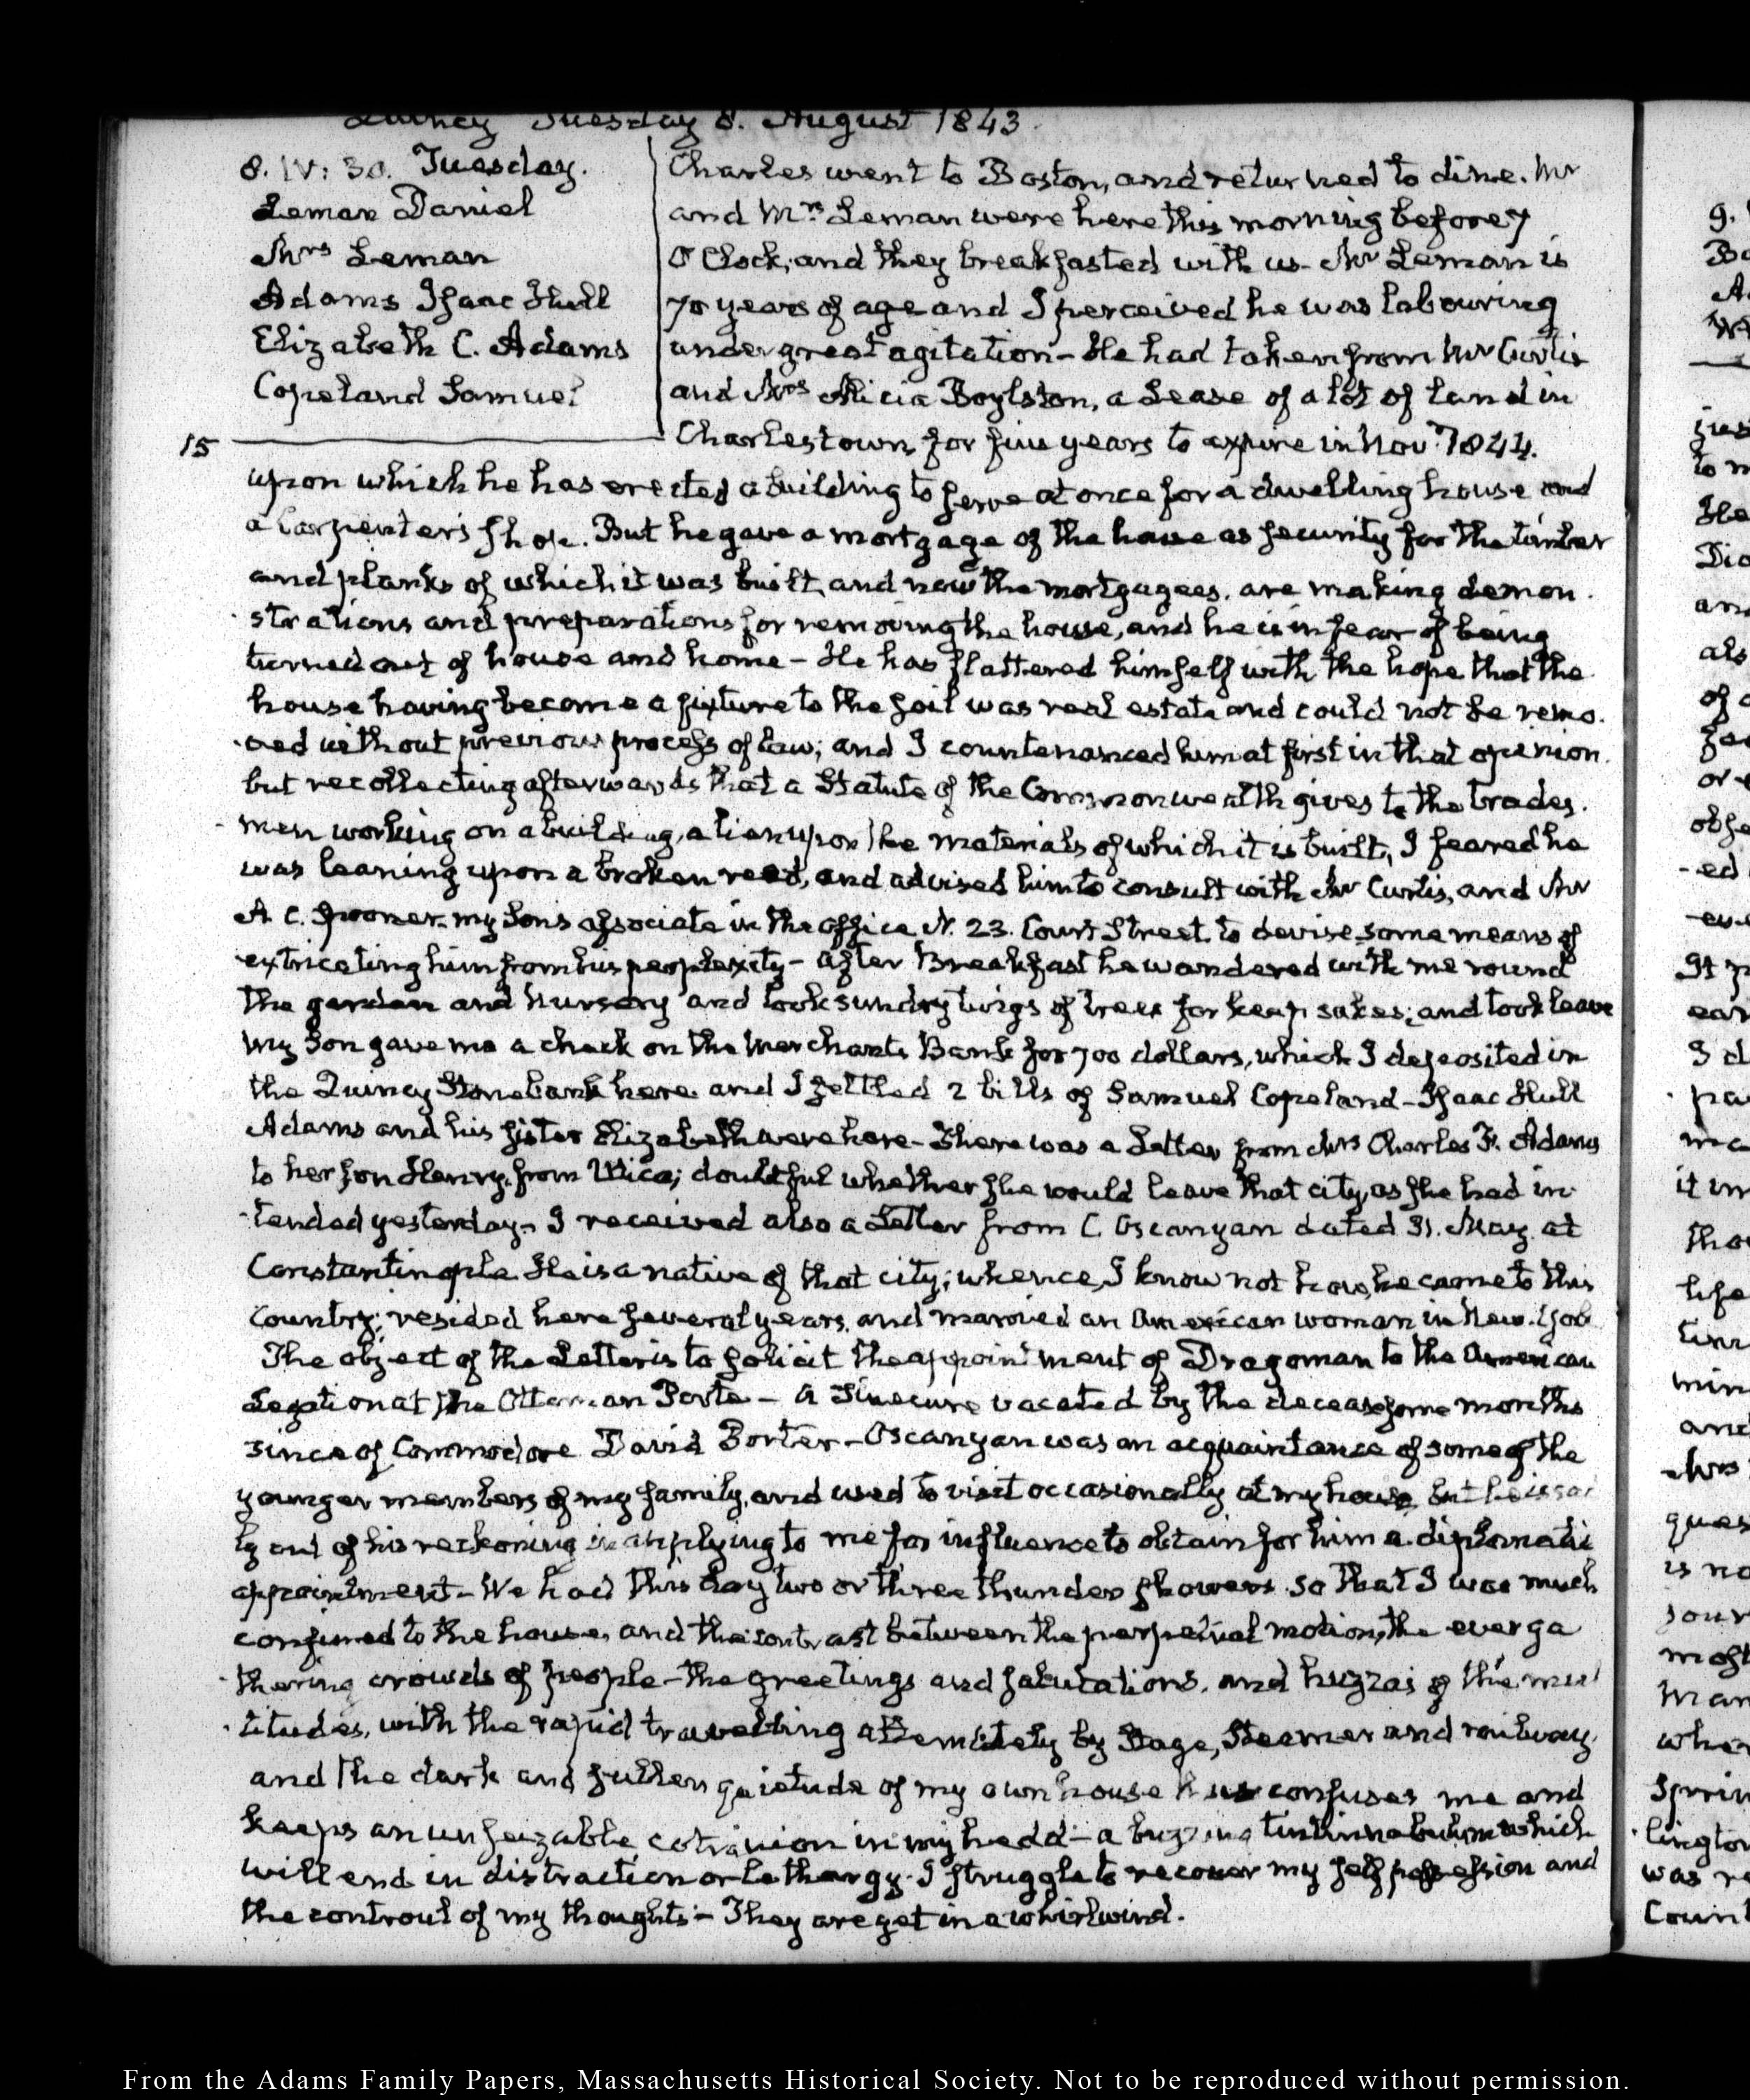 Quincy Tuesday 8. August 1843.
8. IV: 30. Tuesday.
Leman Daniel
Mrs Leman
Adams Isaac Hull
Elizabeth C. Adams
Copeland Samuel
15
Charles went to Boston, and returned to dine. Mr
and Mrs Leman were here this morning before 7
O'Clock, and they breakfasted with us. Mr Leman is
70 years of age and I perceived he was labouring
under great agitation - He had taken from Mr Curtis
and Mrs Alicia Boylston, a Lease of a lot of land in
Charlestown, for five years to expire in Novr 1844.
upon which he has erected a building to serve at once for a dwelling house and
a Carpenter's shop. But he gave a mortgage of the house as security for the timber
and planks of which it was built, and now the mortgagees, are making demon
strations and preparations for removing the house, and he is in fear of being
turned out of house and home - He has flattered himself with the hope that the
house having become a fixture to the soil was real estate and could not be remo
ved without previous process of law; and I countenanced him at first in that opinion.
but recollecting afterwards that a Statute of the Commonwealth gives to the trades.
men working on a building, a lien upon the materials of which it is built, I feared he
was leaning upon a broken reed, and advised him to consult with Mr Curtis, and Mr
A. C. Spooner my Sons associate in the office N. 23. Court Street to devise some means of
extricating him from his peoplexity - After Breakfast he wandered with me round
the garden and nursery and took sundry twigs of trees for keep sakes; and took leave
My Son gave me a check on the Merchants Bank for 700 dollars, which I deposited in
the Quincy Stone bank here and I settled 2 bills of Samuel Copeland - Isaac Hull
Adams and his sister Elizabeth were here - There was a Letter from Mrs Charles F. Adams
to her son Henry, from Utica; doubtful whether she would leave that city, as she had in
tended yesterday - I received also a Letter from C. Oscanyan dated 31. May at
Constantinople He is a native of that city; whence, I know not how, he came to this
Country; resided here several years, and married an American woman in New. York
The object of the Letter is to solicit the appointment of Dragoman to the American
Legation at the Ottoman Porte - A Sinecure vacated by the decease some months
since of Commodore David Porter - Oscanyan was an acquaintance of some of the
younger members of my family, and used to visit occasionally at my house but he is sad
ly out of his reckoning in applying to me for influence to obtain for him a diplomatic
appointment - We had this day two or three thunder showers so that I was much
confined to the house, and the contrast between the perpetual motion, the ever ga
thering crowds of people - the greetings and salutations, and huzzas of the mul
titudes, with the rapid travelling alternately by Stage, Steamer and railway,
and the dark and sullen quietude of my own house thus confuses me and
keeps an unseizable commotion in my head - a buzzing tintinnabulum which
will end in distraction or lethargy. I struggle to recover my self possession and
the controul of my thoughts - They are yet in a whirlwind.
From the Adams Family Papers, Massachusetts Historical Society. Not to be reproduced without permission.